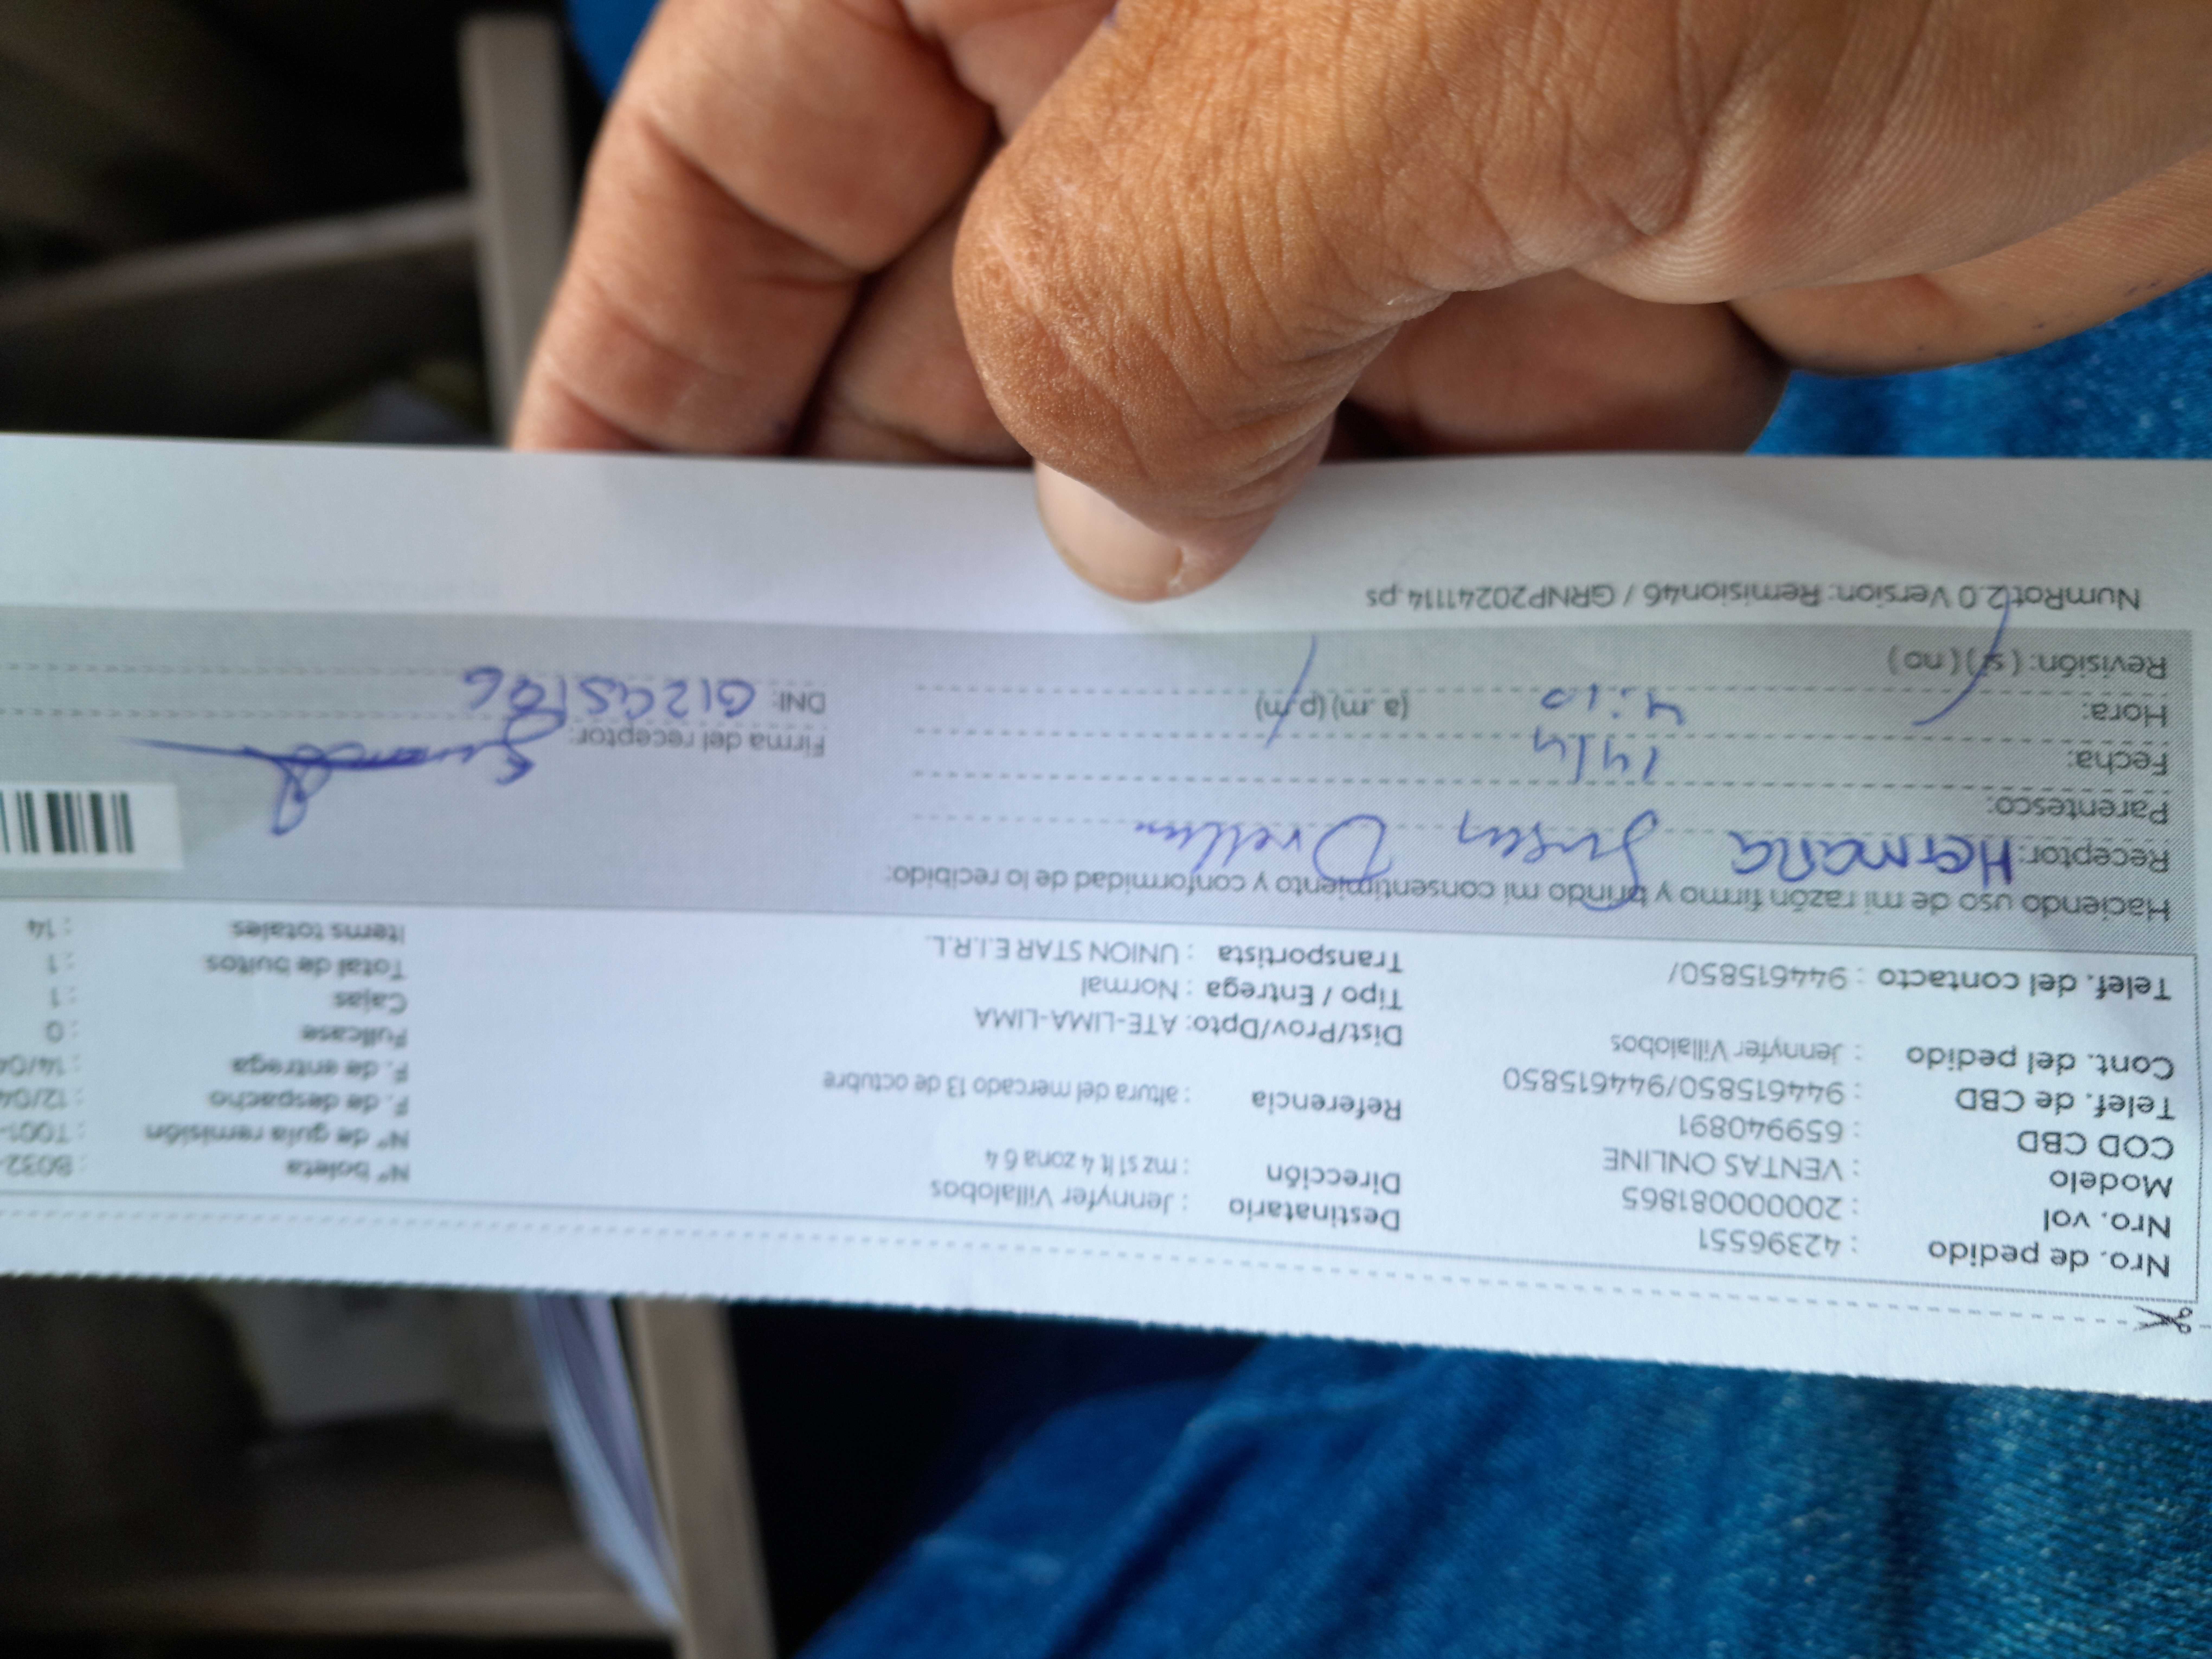 Nro. de pedido : 42396551
Nro. vol : 2000000081865
Modelo : VENTAS ONLINE
COD CBD : 659940891
Telef. de CBD : 944615850/944615850
Cont. del pedido : Jennyfer Villalobos
Telef. del contacto : 944615850/
Destinatario : Jennyfer Villalobos
Dirección : mz s1 lt 4 zona 6 4
Referencia : altura del mercado 13 de octubre
Dist/Prov/Dpto: ATE-LIMA-LIMA
Tipo / Entrega : Normal
Transportista : UNION STAR E.I.R.L.
N° boleta : B032-
N° de guía remisión : T001-
F. de despacho : 12/04
F. de entrega : 14/04
Fullcase : 0
Cajas : 1
Total de bultos : 1
Items totales : 14
Haciendo uso de mi razón firmo y brindo mi consentimiento y conformidad de lo recibido:
Receptor: Hermana
Parentesco:
Fecha: 14/4
Hora: 4:10 (a .m) (p.m)
Revisión: ( si ) ( no )
Firma del receptor:
DNI:
NumRot2.0 Version: Remision46 / GRNP20241114.ps